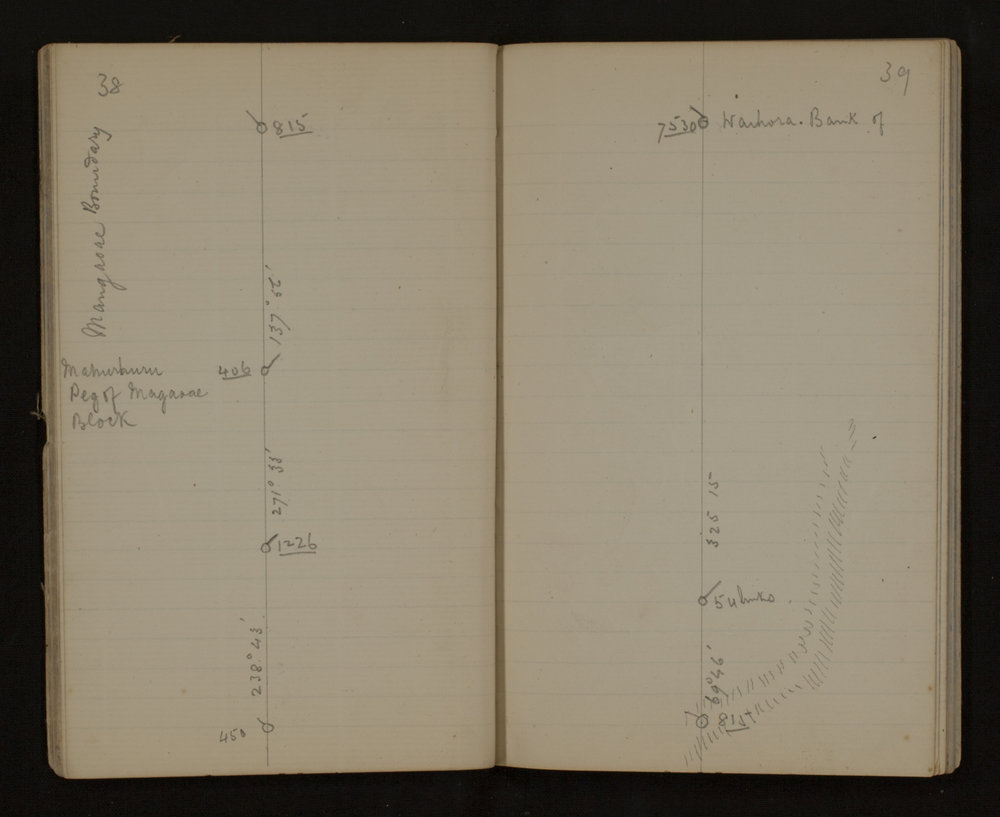 38
815
Mangaoae Boundary
137° 52'
406
Peg of Magaoae
Block
271° 33'
1226
238° 43'
450
39
7530 Waihora. Bank of
325 15
54 links
69° 46'
815